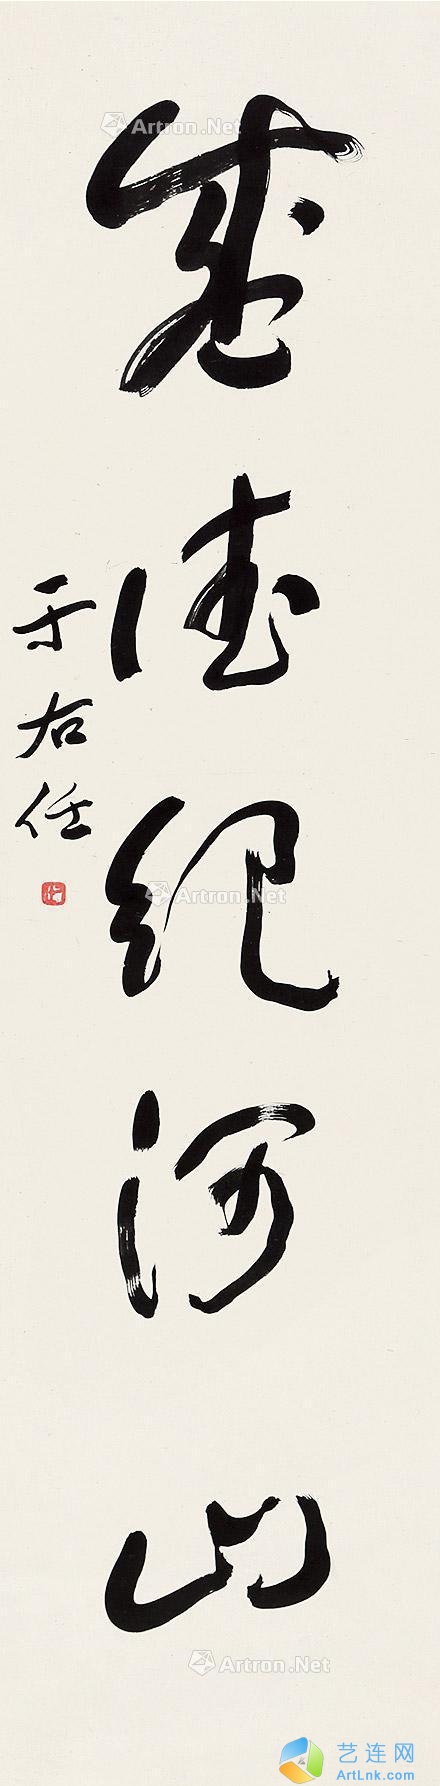 盛德紀河山
于右任
Artron.Net
Artron.Net
Artron.Net
艺连网
ArtLnk.com